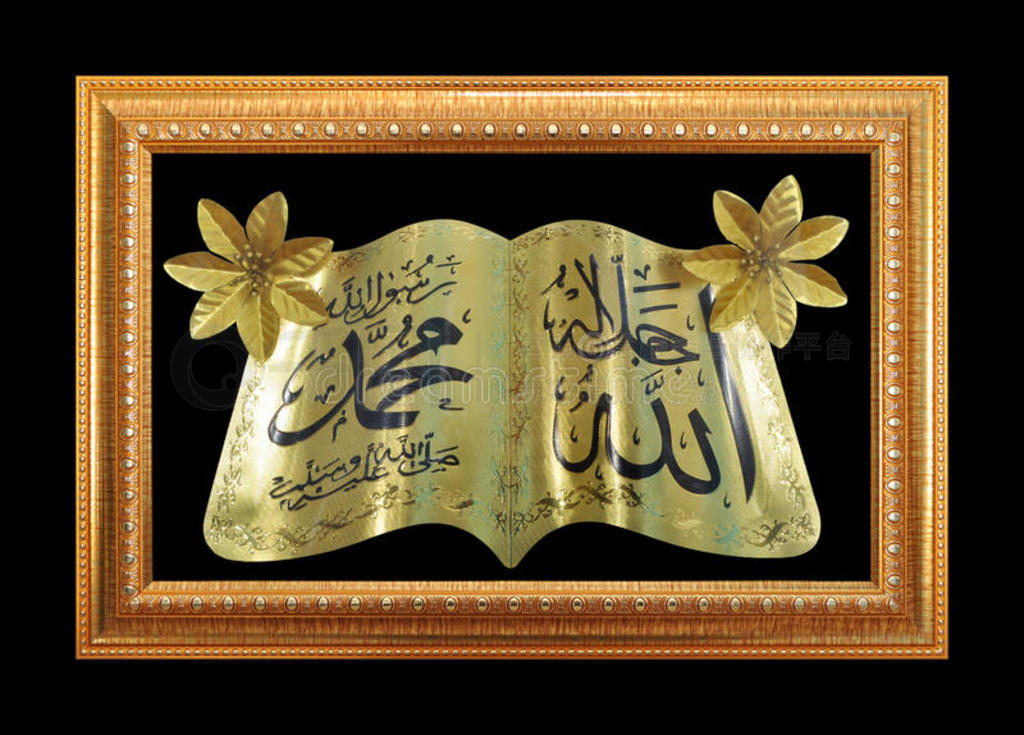 جل جلاله
الله
رسول الله
محمد
صلى الله عليه وسلم